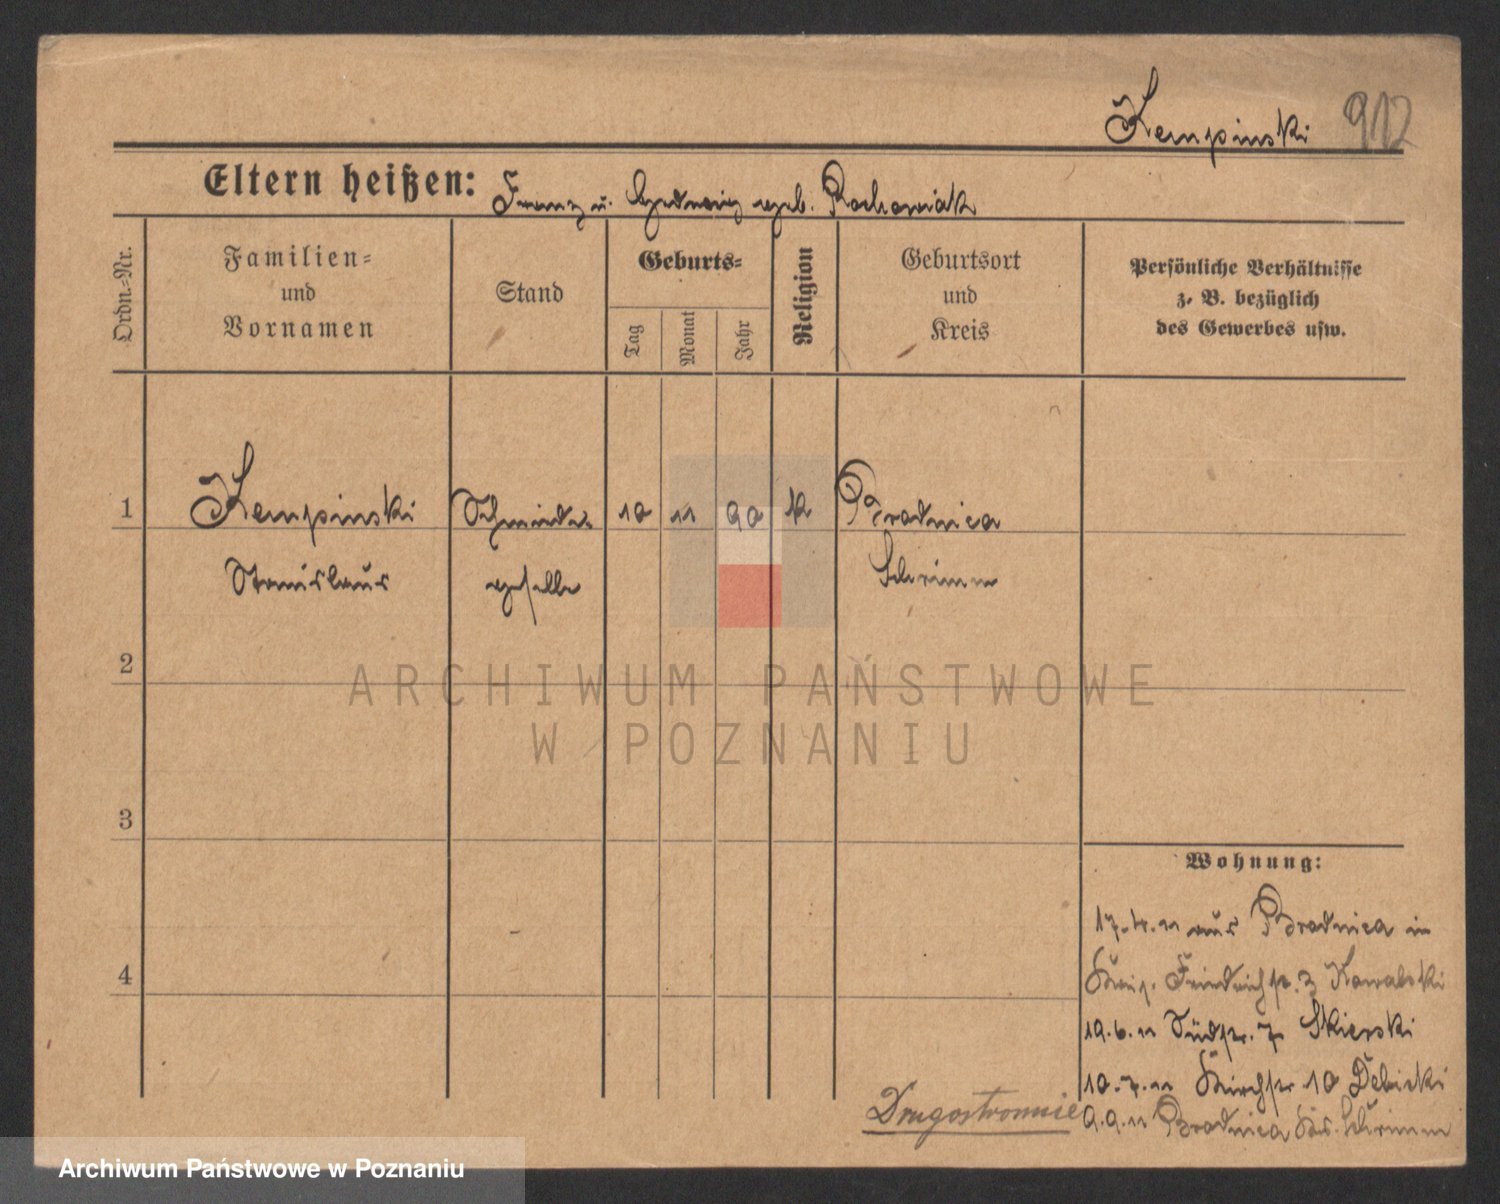 Kempinski 912
Eltern heißen: Franz u. Hedwig geb. Rochowiak
Ordn.-Nr.
Familien-
und
Vornamen
Stand
Geburts-
Tag
Monat
Jahr
Religion
Geburtsort
und
Kreis
Persönliche Verhältnisse
z. B. bezüglich
des Gewerbes usw.
1 Kempinski Schmiede 10 11 90 k Brodnica
Stanislaus geselle Schrimm
2
3
4
Wohnung:
17.4.11 aus Brodnica in
Friedrichstr. 3 Kowalski
19.6.11 Südstr. 7 Skierski
10.7.11 Kirchstr 10 Dębicki
9.9.11 Brodnica Krs. Schrimm
Drugostronnie
ARCHIWUM PAŃSTWOWE
W POZNANIU
Archiwum Państwowe w Poznaniu